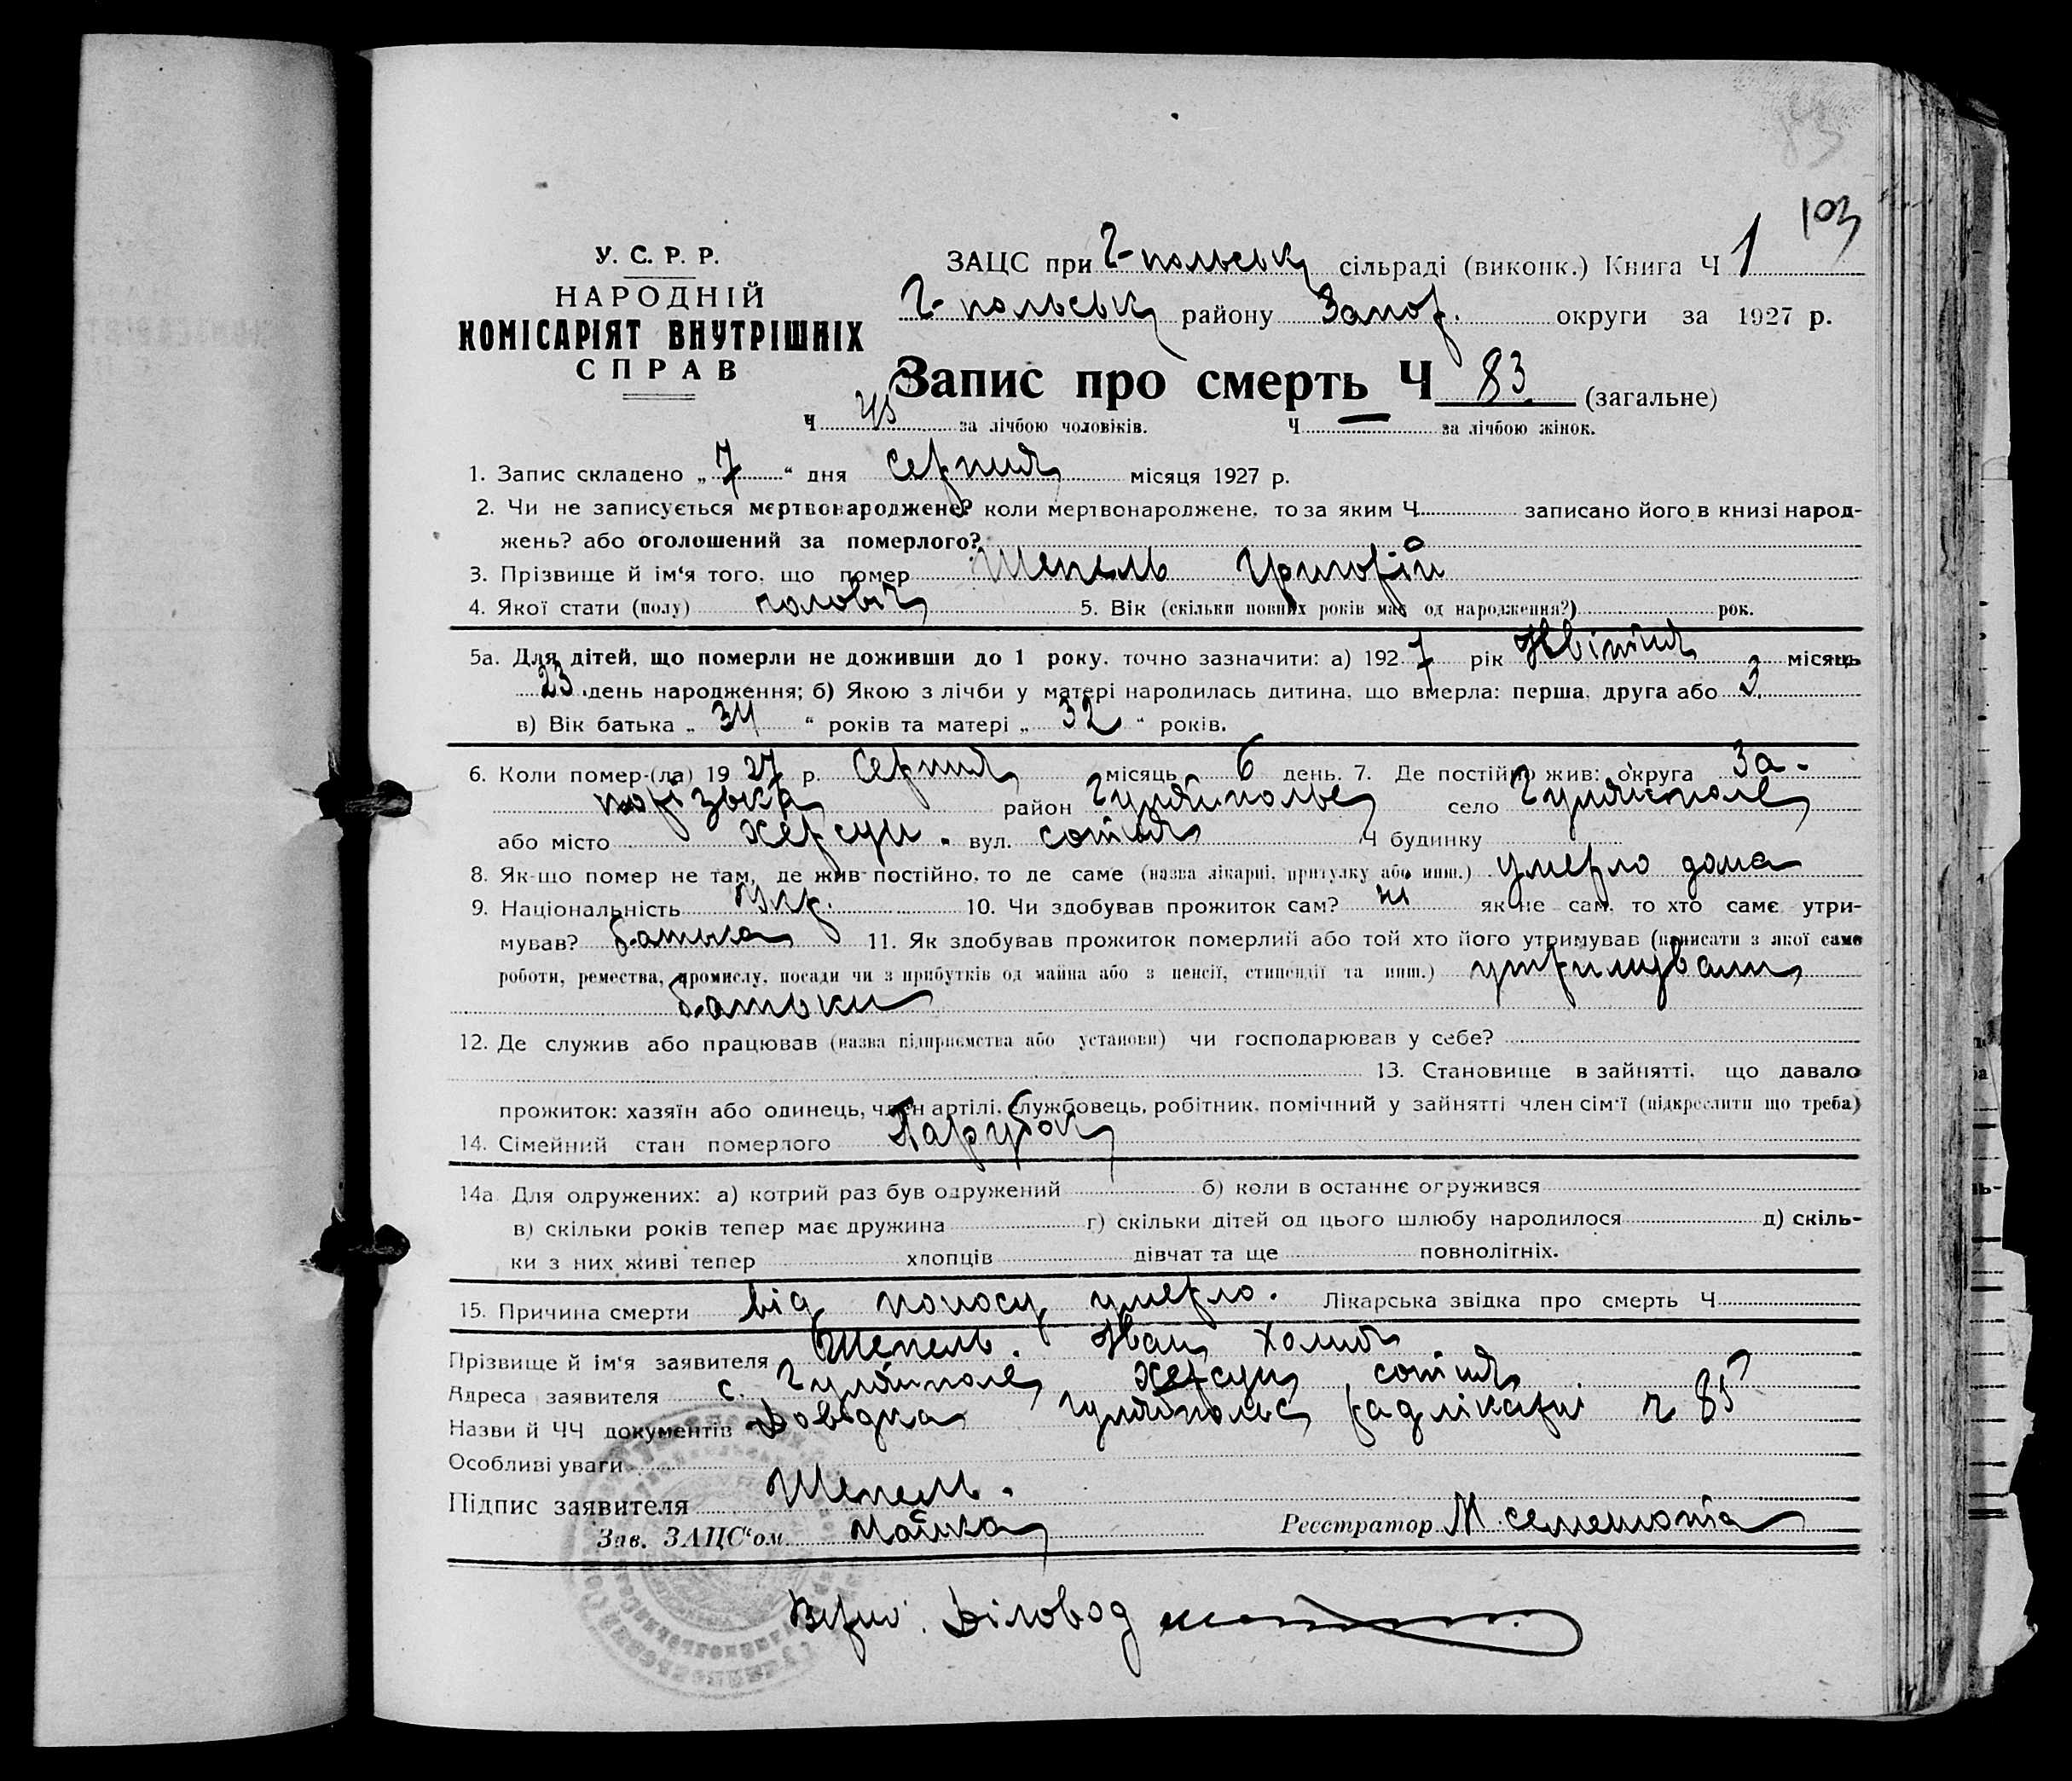 103
У. С. Р. Р.
НАРОДНІЙ
КОМІСАРІЯТ ВНУТРІШНІХ
СПРАВ
ЗАЦС при Г-польськ сільраді (виконк.) Книга Ч 1
Г-польськ району Запор. округи за 1927 р.
Запис про смерть Ч 83 (загальне)
Ч 45 за лічбою чоловіків. Ч — за лічбою жінок.
1. Запис складено „ 7 “ дня Серпня місяця 1927 р.
2. Чи не записується мертвонароджене? коли мертвонароджене, то за яким Ч записано його в книзі народ-
жень? або оголошений за померлого?
3. Прізвище й ім‘я того, що помер Шепель Григорій
4. Якої стати (полу) чоловіч 5. Вік (скільки повних років має од народження?) рок.
5а. Для дітей, що померли не доживши до 1 року, точно зазначити: а) 1927 рік Квітня місяць
23 день народження; б) Якою з лічби у матері народилась дитина, що вмерла: перша, друга або 3.
в) Вік батька „ 34 “ років та матері „ 32 “ років.
6. Коли помер-(ла) 1927 р. Серпня місяць 6 день. 7. Де постійно жив: округа За-
порізька район Гуляйполье село Гуляйполе
або місто Херсун. вул. сотня Ч будинку
8. Як-що помер не там, де жив постійно, то де саме (назва лікарні, притулку або инш.) умерло дома
9. Національність Укр. 10. Чи здобував прожиток сам? ні як не сам, то хто саме утри-
мував? батька 11. Як здобував прожиток померлий або той хто його утримував (написати з якої саме
роботи, ремества, промислу, посади чи з прибутків од майна або з пенсії, стипендії та инш.) утримували
батьки
12. Де служив або працював (назва підприємства або установи) чи господарював у себе?
13. Становище в зайнятті, що давало
прожиток: хазяїн або одинець, член артілі, службовець, робітник, помічний у зайнятті член сім‘ї (підкреслити що треба)
14. Сімейний стан померлого Парубок
14а Для одружених: а) котрий раз був одружений б) коли в останнє одружився
в) скільки років тепер має дружина г) скільки дітей од цього шлюбу народилося д) скіль-
ки з них живі тепер хлопців дівчат та ще повнолітніх.
15. Причина смерти від поносу умерло. Лікарська звідка про смерть Ч
Прізвище й ім‘я заявителя Шепель. Іван Хомич
Адреса заявителя с. Гуляйполе Херсун сотня
Назви й ЧЧ документів Довідка Гуляйпольс радлікарні ч 85
Особливі уваги
Підпис заявителя Шепель.
Зав. ЗАЦС‘ом Реєстратор М
Вірно: Діловод